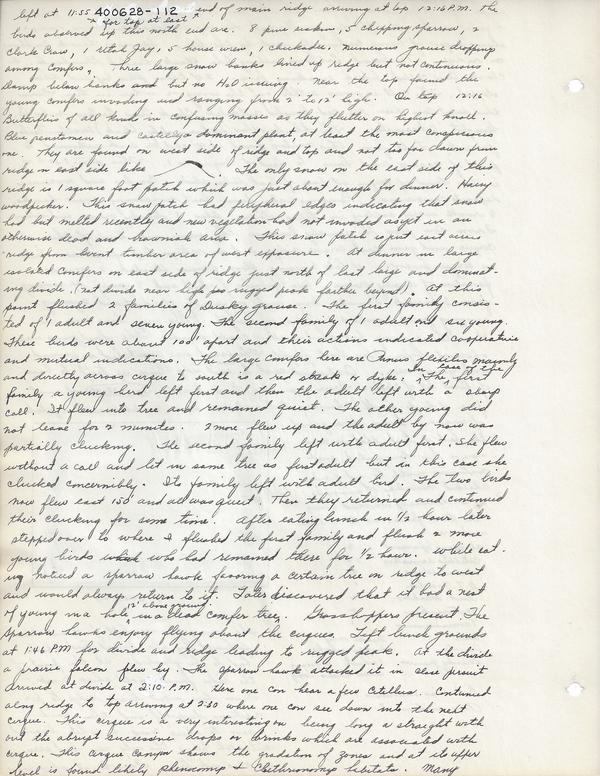 left at 11:55 400628-112 end of main ridge arriving at top 12:16 P.M. The
for top at east
birds observed up this north end are. 8 pine siskin, 5 chipping sparrow, 2
Clark Crow, 1 Utah Jay, 5 house wren, 1 chickadee. Numerous grouse droppings
among conifers. Three large snow banks lined up ridge but not continuous.
Damp below banks and but no H2O issuing. Near the top found the
young conifers invading and ranging from 2' to 12' high. On top 12:16
Butterflies of all kinds in confusing masses as they flutter on highest knoll.
Blue penstemon and a dominant plant, at least the most conspicuous
one. They are found on west side of ridge and top and not too far down from
ridge on east side like . The only snow on the east side of this
ridge is 1 square foot patch which was just about enough for dinner. Hairy
woodpecker. This snow patch had peripheral edges indicating that snow
had but melted recently and new vegetation had not invaded as yet in an
otherwise dead and brownish area. This snow patch is just east across
ridge from bent timber area of west exposure. At dinner in large
isolated conifers on east side of ridge just north of last large and dominat-
ing divide. (not divide near high rugged peak farther beyond). At this
point flushed 2 families of Dusky grouse. The first family consis-
ted of 1 adult and seven young. The second family of 1 adult and six young.
These birds were about 100' apart and their actions indicated cooperative
and mutual indications. The large conifers here are Pinus flexilus mainly
and directly across cirque to south is a red streak or dyke. In case of the first
family a young bird left first and then the adult left with a sharp
call. It flew into tree and remained quiet. The other young did
not leave for 2 minutes. 2 more flew up and the adult by now was
partially clucking. The second family left with adult first. She flew
without a call and lit in same tree as first adult but in this case she
clucked discernibly. Its family left with adult bird. The two birds
now flew east 150' and all was quiet. Then they returned and continued
their clucking for some time. After eating lunch in 1/2 hour later
stepped over to where I flushed the first family and flush 2 more
young birds who had remained there for 1/2 hour. While eat-
ing noticed a sparrow hawk favoring a certain tree on ridge to west
and would always return to it. Later discovered that it had a nest
of young in a hole 12' above ground in a dead conifer tree. Grasshoppers present. The
Sparrow hawks enjoy flying about the cirques. Left lunch grounds
at 1:46 P.M for divide and ridge leading to rugged peak. At the divide
a prairie falcon flew by. The sparrow hawk attacked it in close pursuit
Arrived at divide at 2:10 P.M. Here one can hear a few Citellus. Continued
along ridge to top arriving at 2:30 where one can see down into the next
cirque. This cirque is a very interesting on being long a straight with
out the abrupt successive drops or which are associated with
cirque. This cirque canyon shows the gradation of zones and at its upper
level is found likely phenacomys & Clethrionomys habitats. Many